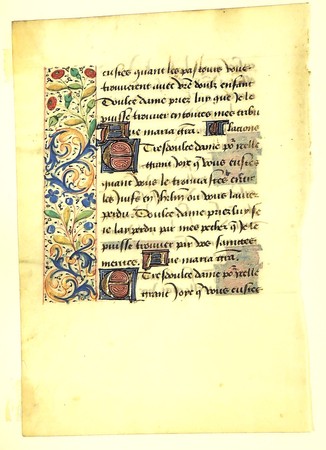 eustes quant les pastours vous
trouverent avec vre doulx enfant
Doulce dame priez luy que Je le
puisse trouver en toutes mes tribu
Ave maria gra. lacions
Tresdoulce dame por celle
grant Joye q vous eustes
quant vous le trouvastes entre
les Juifs en Jhrlm ou vous lavies
perdu. Doulce dame priez luy se
je lay perdu par mes pechez q Je le
puisse trouver par vos sainctes
merites. Ave maria gra.
Tresdoulce dame por celle
grant Joye q vous eustes